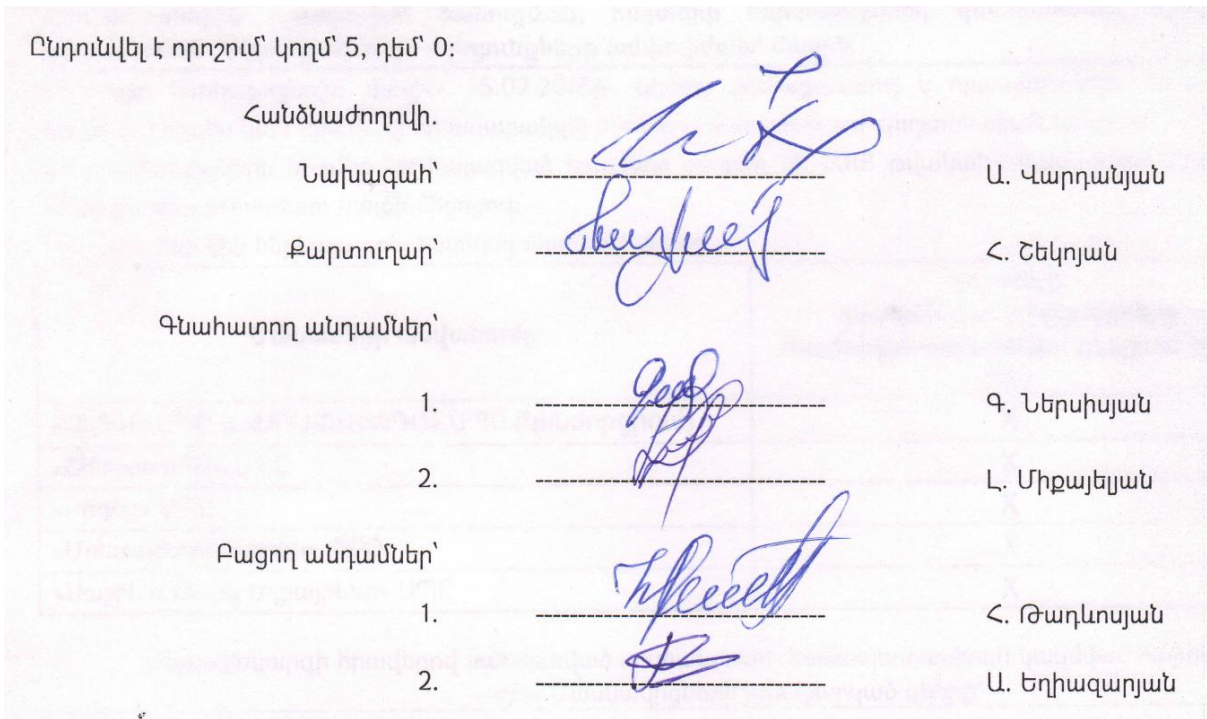 Ընդունվել է որոշում՝ կողմ՝ 5, դեմ՝ 0:
Հանձնաժողովի.
Նախագահ ---------------------------- Ա. Վարդանյան
Քարտուղար ---------------------------- Հ. Շեկոյան
Գնահատող անդամներ՝
1. ---------------------------- Գ. Ներսիսյան
2. ---------------------------- Լ. Միքայելյան
Բացող անդամներ՝
1. ---------------------------- Հ. Թադևոսյան
2. ---------------------------- Ա. Եղիազարյան